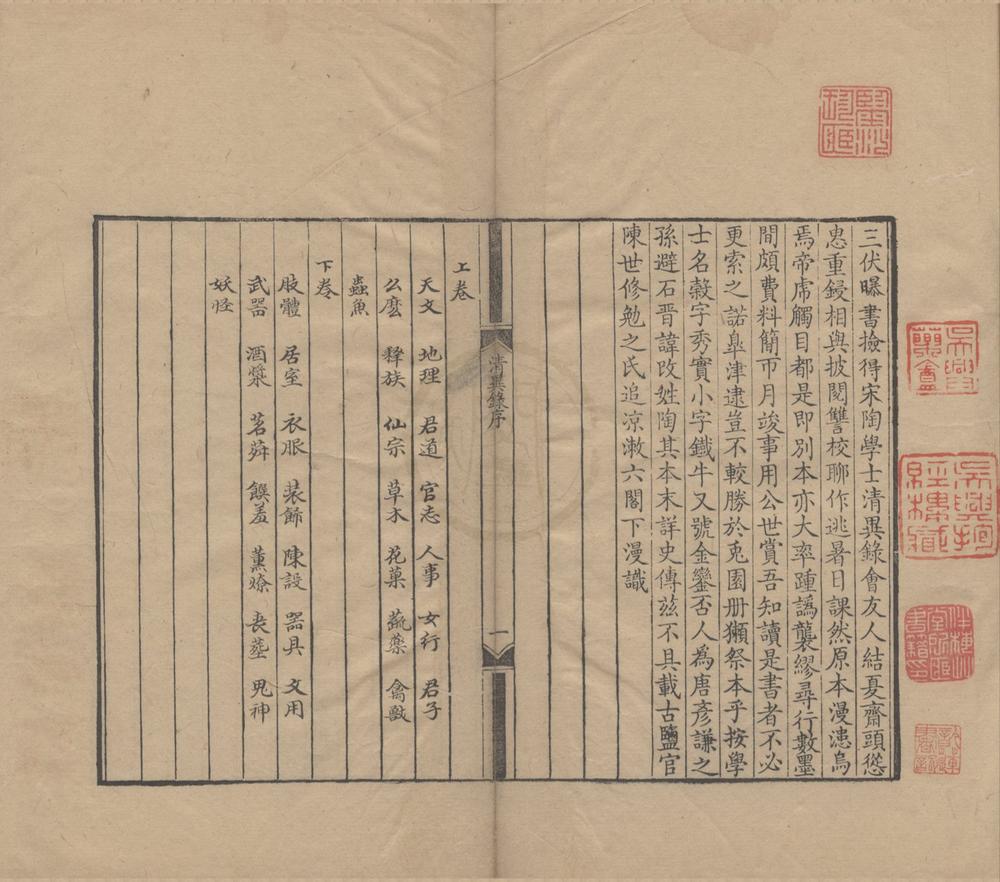 三伏曝書撿得宋陶學士清異錄會友人結夏齋頭慫
恿重鋟相與披閱讐校聊作逃暑日課然原本漫漶烏
焉帝虎觸目都是即別本亦大率踵譌襲繆尋行數墨
間頗費料簡帀月竣事用公世賞吾知讀是書者不必
更索之諾臯津逮豈不較勝於兎園册獺祭本乎按學
士名穀字秀實小字鐵牛又號金鑾否人為唐彥謙之
孫避石晋諱改姓陶其本末詳史傳茲不具載古鹽官
陳世修勉之氏追凉漱六閣下漫識
清異錄序
一
上卷
天文 地理 君道 官志 人事 女行 君子
么麼 釋族 仙宗 草木 花菓 蔬藥 禽獸
蟲魚
下卷
肢體 居室 衣服 裝飾 陳設 器具 文用
武器 酒漿 茗荈 饌羞 薰燎 喪塟 鬼神
妖怪
吳興
藥盦
吳興抱
經樓藏